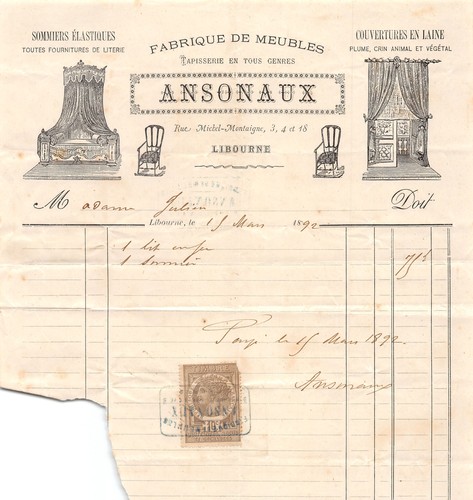 SOMMIERS ÉLASTIQUES
TOUTES FOURNITURES DE LITERIE
FABRIQUE DE MEUBLES
TAPISSERIE EN TOUS GENRES
ANSONAUX
Rue Michel-Montaigne, 3, 4 et 18
LIBOURNE
COUVERTURES EN LAINE
PLUME, CRIN ANIMAL ET VÉGÉTAL
Madame Julien Doit
Libourne, le 15 Mars 1892
1 lit
1 sommier 75
le 15 Mars 1892
Ansonaux
ANSONAUX
10